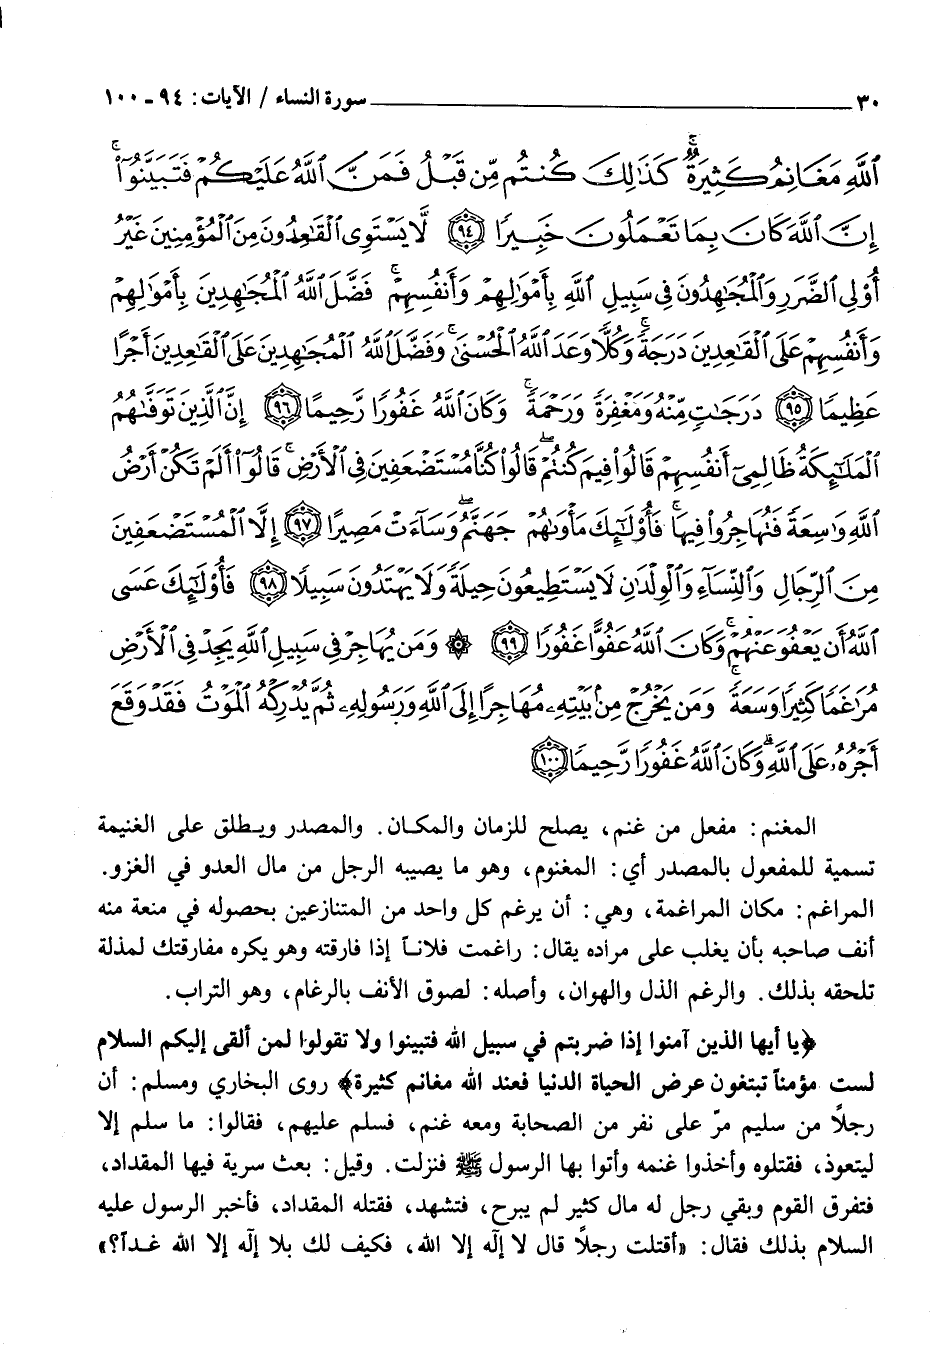 ٣٠ سورة النساء / الآيات: ٩٤ - ١٠٠
ٱللَّهِ مَغَانِمُ كَثِيرَةٌ ۚ كَذَٰلِكَ كُنتُم مِّن قَبْلُ فَمَنَّ ٱللَّهُ عَلَيْكُمْ فَتَبَيَّنُوٓا۟ ۚ
إِنَّ ٱللَّهَ كَانَ بِمَا تَعْمَلُونَ خَبِيرًا ﴿٩٤﴾ لَّا يَسْتَوِى ٱلْقَٰعِدُونَ مِنَ ٱلْمُؤْمِنِينَ غَيْرُ
أُو۟لِى ٱلضَّرَرِ وَٱلْمُجَٰهِدُونَ فِى سَبِيلِ ٱللَّهِ بِأَمْوَٰلِهِمْ وَأَنفُسِهِمْ ۚ فَضَّلَ ٱللَّهُ ٱلْمُجَٰهِدِينَ بِأَمْوَٰلِهِمْ
وَأَنفُسِهِمْ عَلَى ٱلْقَٰعِدِينَ دَرَجَةً ۚ وَكُلًّا وَعَدَ ٱللَّهُ ٱلْحُسْنَىٰ ۚ وَفَضَّلَ ٱللَّهُ ٱلْمُجَٰهِدِينَ عَلَى ٱلْقَٰعِدِينَ أَجْرًا
عَظِيمًا ﴿٩٥﴾ دَرَجَٰتٍ مِّنْهُ وَمَغْفِرَةً وَرَحْمَةً ۚ وَكَانَ ٱللَّهُ غَفُورًا رَّحِيمًا ﴿٩٦﴾ إِنَّ ٱلَّذِينَ تَوَفَّىٰهُمُ
ٱلْمَلَٰٓئِكَةُ ظَالِمِىٓ أَنفُسِهِمْ قَالُوا۟ فِيمَ كُنتُمْ ۖ قَالُوا۟ كُنَّا مُسْتَضْعَفِينَ فِى ٱلْأَرْضِ ۚ قَالُوٓا۟ أَلَمْ تَكُنْ أَرْضُ
ٱللَّهِ وَٰسِعَةً فَتُهَاجِرُوا۟ فِيهَا ۚ فَأُو۟لَٰٓئِكَ مَأْوَىٰهُمْ جَهَنَّمُ ۖ وَسَآءَتْ مَصِيرًا ﴿٩٧﴾ إِلَّا ٱلْمُسْتَضْعَفِينَ
مِنَ ٱلرِّجَالِ وَٱلنِّسَآءِ وَٱلْوِلْدَٰنِ لَا يَسْتَطِيعُونَ حِيلَةً وَلَا يَهْتَدُونَ سَبِيلًا ﴿٩٨﴾ فَأُو۟لَٰٓئِكَ عَسَى
ٱللَّهُ أَن يَعْفُوَ عَنْهُمْ ۚ وَكَانَ ٱللَّهُ عَفُوًّا غَفُورًا ﴿٩٩﴾ ۞ وَمَن يُهَاجِرْ فِى سَبِيلِ ٱللَّهِ يَجِدْ فِى ٱلْأَرْضِ
مُرَٰغَمًا كَثِيرًا وَسَعَةً ۚ وَمَن يَخْرُجْ مِنۢ بَيْتِهِۦ مُهَاجِرًا إِلَى ٱللَّهِ وَرَسُولِهِۦ ثُمَّ يُدْرِكْهُ ٱلْمَوْتُ فَقَدْ وَقَعَ
أَجْرُهُۥ عَلَى ٱللَّهِ ۗ وَكَانَ ٱللَّهُ غَفُورًا رَّحِيمًا ﴿١٠٠﴾
المغنم: مفعل من غنم، يصلح للزمان والمكان. والمصدر ويطلق على الغنيمة
تسمية للمفعول بالمصدر أي: المغنوم، وهو ما يصيبه الرجل من مال العدو في الغزو.
المراغم: مكان المراغمة، وهي: أن يرغم كل واحد من المتنازعين بحصوله في منعة منه
أنف صاحبه بأن يغلب على مراده يقال: راغمت فلاناً إذا فارقته وهو يكره مفارقتك لمذلة
تلحقه بذلك. والرغم الذل والهوان، وأصله: لصوق الأنف بالرغام، وهو التراب.
﴿يا أيها الذين آمنوا إذا ضربتم في سبيل الله فتبينوا ولا تقولوا لمن ألقى إليكم السلام
لست مؤمناً تبتغون عرض الحياة الدنيا فعند الله مغانم كثيرة﴾ روى البخاري ومسلم: أن
رجلاً من سليم مرّ على نفر من الصحابة ومعه غنم، فسلم عليهم، فقالوا: ما سلم إلا
ليتعوذ، فقتلوه وأخذوا غنمه وأتوا بها الرسول ﷺ فنزلت. وقيل: بعث سرية فيها المقداد،
فتفرق القوم وبقي رجل له مال كثير لم يبرح، فتشهد، فقتله المقداد، فأخبر الرسول عليه
السلام بذلك فقال: «أقتلت رجلاً قال لا إلٰه إلا الله، فكيف لك بلا إلٰه إلا الله غداً؟»